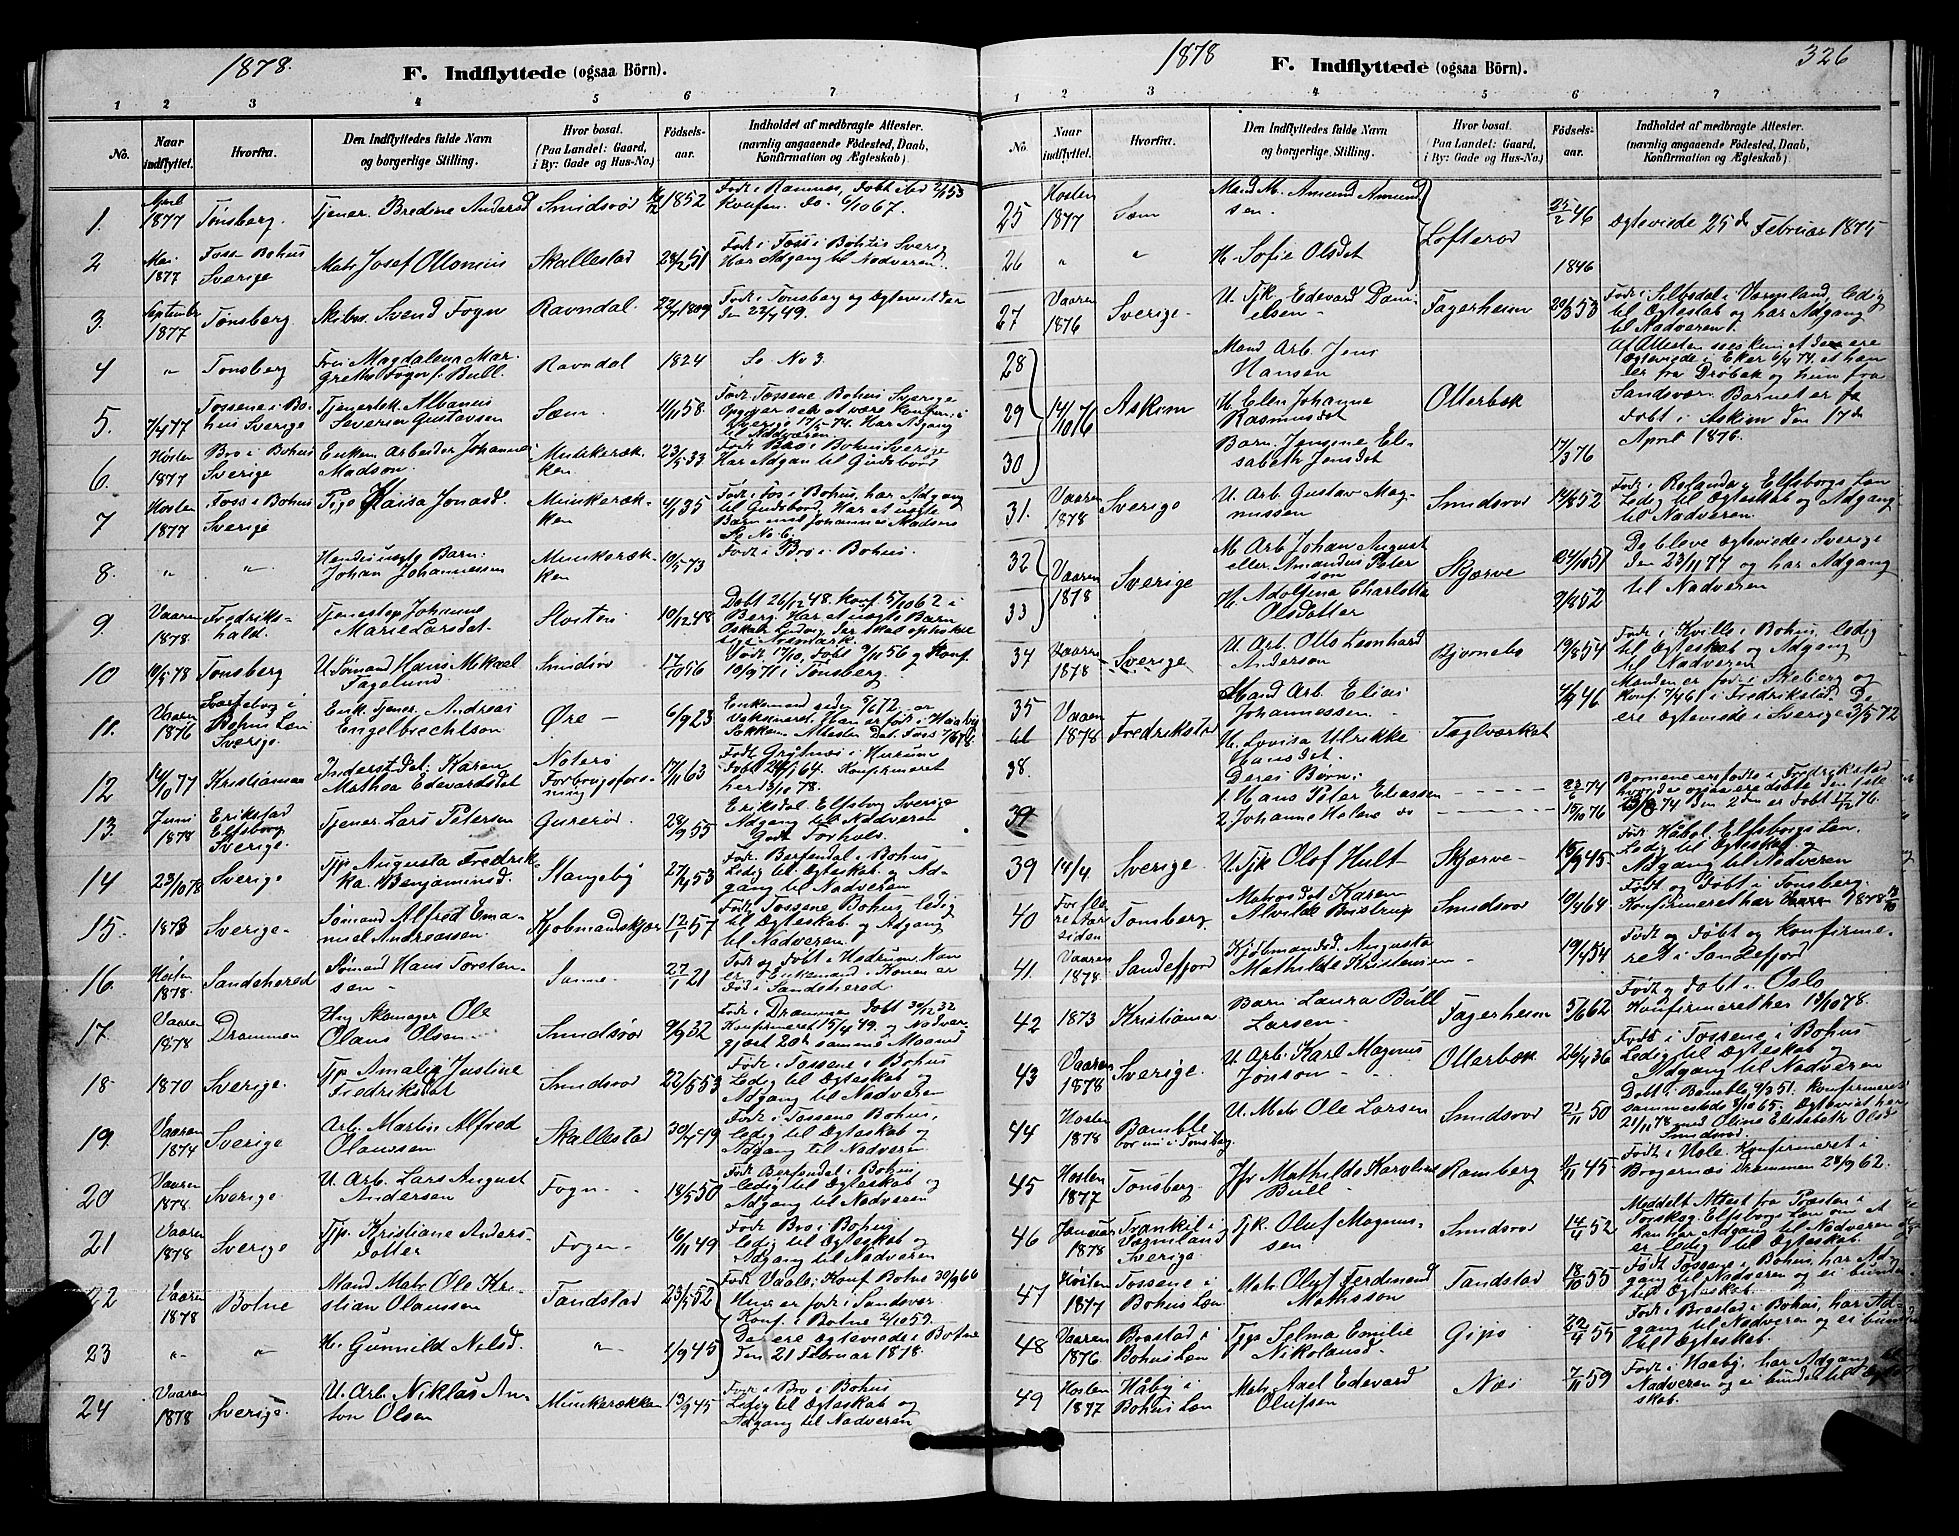 1878.
F. Indflyttede (ogsaa Börn).
1 2 3 4 5 6 7
No.
Naar indflyttet.
Hvorfra.
Den Indflyttedes fulde Navn og borgerlige Stilling.
Hvor bosat. (Paa Landet: Gaard, i By: Gade og Hus-No.)
Födsels-aar.
Indholdet af medbragte Attester. (navnlig angaaende Födested, Daab, Konfirmation og Ægteskab).
1. April 1877 Tonsberg. Tjener. Bredine Andersd Smidsrød 1852 Født i Ramnes, Døbt ibd 2/1 53 Konfm. do. 6/10 67.
2 Mai 1877 Foss Bohus Sverige Matr Josef Ollonius Skallestad 28/2 51 Født i Foss i Bohus Sverig Har Adgang til Nadveren.
3. September 1877 Tønsberg. Skibsr. Svend Fogn Ravndal. 22/7 1809 Født i Tonsberg og Ægteviet der den 22/7 49.
4 " Tonsberg Fru Magdalena Mar-grethe Fogn f. Bull. Ravndal 1824 Se No 3.
5. 7/4 77 Tossene i Bo-hus Sverige Tjenerk. Albanus Severin Gustavsen Sæm 4/11 58. Født Tossene Bohus Sverige Opgiver selv at være Konfm. i Sverige 17/5 74. Har Adgang til Nadveren
6. Høsten 1877 Bro i Bohus Sverige Enkem. Arbeider Johannes Madson. Munkeræk-ken. 23/5 33 Født Bro i Bohus Sverige Har Adgan til Gudsbord
7 Høsten 1877 Foss i Bohus Sverige Pige Kaisa Jonasd. Munkeræk-ken 4/1 35 Født i Fos i Bohus, har Adgang til Gudsbord. Har et uægte Barn med Johannes Madsons Se No 6.
8. " " Hendes uægte Barn: Johan Johannessen Munkeræk-ken 10/5 73 Født i Bro i Bohus.
9. Vaaren 1878 Fredriks-hald. Tjenestep Johanne Marie Larsdat. Stosten 10/12 48 Døbt 26/12 48. Konf. 5/10 62 i Berg. Har et uægte Barn Oskar Ludvig der skal opholde sig i
10 10/5 78 Tonsberg U. Sømand Hans Mikael Fagelund Smidsrø 17/10 56 Født 17/10, døbt 9/11 56 og Konf. 10/9 71 i Tønsberg.
11. Vaaren 1876 Svarteborg i Bohus Len Sverige. Enk. Tjener. Andreas Engelbrechtson Øre - 6/9 23 Enkemand siden 7/6 72. er vaksineret. Han er født i Haaby Sokken. Attesten Dat. Foss 7/6 78.
12 14/10 77 Kristiania Inderstedet. Karen Mathea Edevardsdat Noterø Forbrugsfore-ning 17/11 63 Født Grytnes i Hurum Døbt 24/1 64. Konfirmeret her 13/10 78.
13. Juni 1878 Erikstad Elfsborg Sverige. Tjener. Lars Petersen Gurerød 28/9 55 Eriksdal. Elfsbog Sverige Adgang til Nadveren Godt Forhols.
14 23/10 78 Sverige Tjp. Augusta Fredrik-ka. Benjaminsd. Stangeby 27/4 53 Født. Berfendal i Bohus Ledig til. Ægteskab og Ad-gang til Nadveren
15. 1873 Sverige Sømand Alfred Ema-nuel Andreassen. Kjøbmandskjær 12/1 57 Født Tossene Bohus ledig til Ægteskab og Adgang til Nadveren.
16. Høsten 1878. Sandeherred Sømand Hans Torsten-sen Samme. 27/1 21 Født og Døbt i Hedrum. Han er Enkemand. Konen er Død i Sandeherred.
17. Vaaren 1878 Drammen Hug Skomager Ole Olaus Olsen Smidsrød 9/9 32 Født i Drammen Døbt 30/12 32 Konfirmeret 15/4 49. og Nadver-gjæst 20de samme Maaned
18 1870 Sverige. Tjp. Amalia Justine Fredriksdat Smidsrod 22/5 53 Født i Tossene i Bohus Ledig til Ægteskab og Adgang til Nadveren
19. Vaaren 1874 Sverige Arb. Martin Alfred Olaussen Skallestad 30/7 49 Født i Tossene Bohus, ledig til Ægteskab og Adgang til Nadveren.
20 Vaaren 1878. Sverige U. Arb. Lars August Andersen Fogn - 18/5 50 Født Berfendal i Bohus, ledig til Ægteskab og Adgang til Nadveren
21 Vaaren 1878 Sverige Tjp. Kristiane Anders-datter Fogn - 16/11 49 Født Bro i Bohus ledig til Ægteskab og Adgang til Nadveren
22 Vaaren 1878 Botne Mand Matr Ole Kri-stian Olaussen Tandstad 23/5 52 Født Vaale; Konf. Botne 30/9 66 Hun er født i Sandsvær. Konf. i Botne 2/10 59
23 " " H. Gunnild Nelsd. " 4/9 45 De ere Ægteviede i Botne den 21 Februar 1878.
24 Vaaren 1878 Sverige. U. Arb. Niklas An-ton Olsen Munkerækken 13/9 45 Født i Bro i Bohus Ledig til Ægteskab og Adgang til Nadveren
1878
F. Indflyttede (ogsaa Börn).
326
1 2 3 4 5 6 7
No.
Naar indflyttet.
Hvorfra.
Den Indflyttedes fulde Navn og borgerlige Stilling.
Hvor bosat. (Paa Landet: Gaard, i By: Gade og Hus-No.)
Födsels-aar.
Indholdet af medbragte Attester. (navnlig angaaende Födested, Daab, Konfirmation og Ægteskab).
25 Høsten 1877 Sæm Mand M. Amund Amund-sen. Løfterød 25/2 46 Ægteviede 25de Februar 1875
26 " " H. Sofie Olsdet 1846
27 Vaaren 1876 Sverige - U. Tjk. Edevard Dani-elsen - Fagerheim 20/3 53 Født i Silbodal i Vermland, ledig til Ægteskab og har Adgang til Nadveren.
28 Mand Arb. Jens Hansen Af Attesten sees kun at de ere Ægteviede i Eker 6/4 74. at han er fra Drøbak og hun fra Sandsvær. Barnet er Døbt i Askim den 17de April 1876.
29 14/10 76 Askim H. Elen Johanne Rasmusdet Otterbæk
30 Barn. Jensine Eli-sabeth Jensdet 17/3 76
31. Vaaren 1878 Sverige U. Arb. Gustav Mag-nussen Smidsrod 14/8 52 Født i Rolanda, Elfsborgs Len Ledig til Ægteskab og Adgang til Nadveren.
32 Vaaren 1878 Sverige M. Arb. Johan August eller Amandus Peter son Skjærve 24/10 51 De bleve Ægteviede i Sverige den 23/11 77 og har Adgang til Nadveren
33 H. Adolfina Charlotta Olsdatter 9/8 52
34 Vaaren 1878 Sverige U. Arb. Otto Leonhard Anderson Bjornebo 19/8 54 Født i Kville i Bohus, ledig til Ægteskab og Adgang til Nadveren
35 til 38. Vaaren 1878 Fredrikstad Mand Arb. Elias Johannessen - Taglverket 4/9 46 Manden er født i Skeberg og Konf 7/4 61 i Fredrikstad. De ere Ægteviede i Sverige 3/5 72
H. Lovisa Ulrikke Hansdet
Deres Børn:
1. Hans Peter Eliassen 23/6 74 Børnene er fødte i Fredrikstad
39 2. Johanne Helene do 15/10 76
39 14/4 Sverige U. Tjk Olof Hult Skjærve 18/9 45 Født Håbol. Elfsborgs Len. Ledig til Ægteskab og Adgang til Nadveren
40 For fle re Aar siden Tonsberg Matrosdet Karen Alvilde Bristrup Smidsrod 10/4 64 Født og Døbt i Tonsberg. Konfirmeret her 1878
41. Vaaren 1878 Sandefjord Kjøbmandsd. Augusta Mathilde Kristensen 19/4 54 Født og døbt og konfirme-ret i Sandefjord
42 1873 Kristiania Barn. Laura Bull Larsen - Fagerheim 5/6 62 Født og døbt i Oslo Konfirmeret her 13/10 78.
43 Vaaren 1878 Sverige. U. Arb. Karl Magnus Jonson - Otterbæk 26/4 36 Født i Tossene i Bohus Ledig til Ægteskab og Adgang til Nadveren
44 Høsten 1878 Bamble bor nu i Tonsberg. U. Matr Ole Larsen Smidsrod 2/11 50 Døbt i Bamble 9/3 51. Konfirmeret sammesteds 8/10 65. Ægteviet her 21/11 78 med Oline Elisabeth Olsd Smidsrod.
45 Høsten 1877 Tonsberg. Jfr Mathilde Karoline Bull - Ramberg 4/11 45 Født i Hole. Konfirmeret i Bragernæs Drammen 28/9 62.
46 Januar 1878 Trankil i Vermland Sverige Tjk. Oluf Magnus-sen Smidsrod 14/4 52 Meddelt Attest fra Præsten i Torskog. Elfsborgs Len om at han har Adgang til Nadveren og er ledig til Ægteskab.
47 Høsten 1877 Tossene i Bohus Len Matr Oluf Ferdinand Mathsson Tandstad 18/10 55 Født Tossene i Bohus, har Ad-gang til Nadveren og ei bunden til Ægteskab.
48 Vaaren 1876 Brastad i Bohus Len Tjp Selma Emilie Nikolausd. Gipø 22/4 55 Født i Brastad i Bohus, har Ad-gang til Nadveren og ei bunden til Ægteskab.
49 Høsten 1877 Håby i Bohus Len Matr. Axel Edevard Olufsen Næs 7/11 59 Født i Haaby. har Adgang til Nadveren og ei bunden til Ægte-skab.